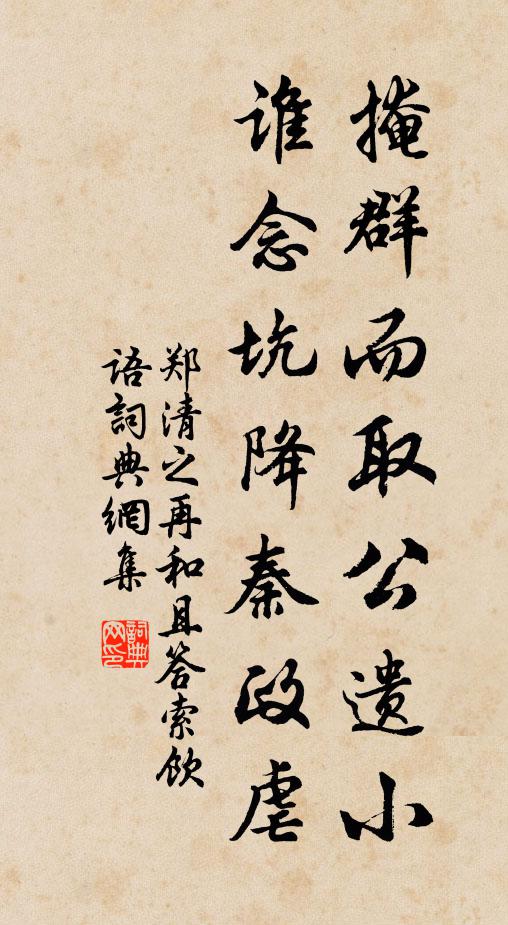 掩群而取公遗小
谁念坑降秦政虐
郑清之再和且答索饮
语詞典網集
詞典
网印